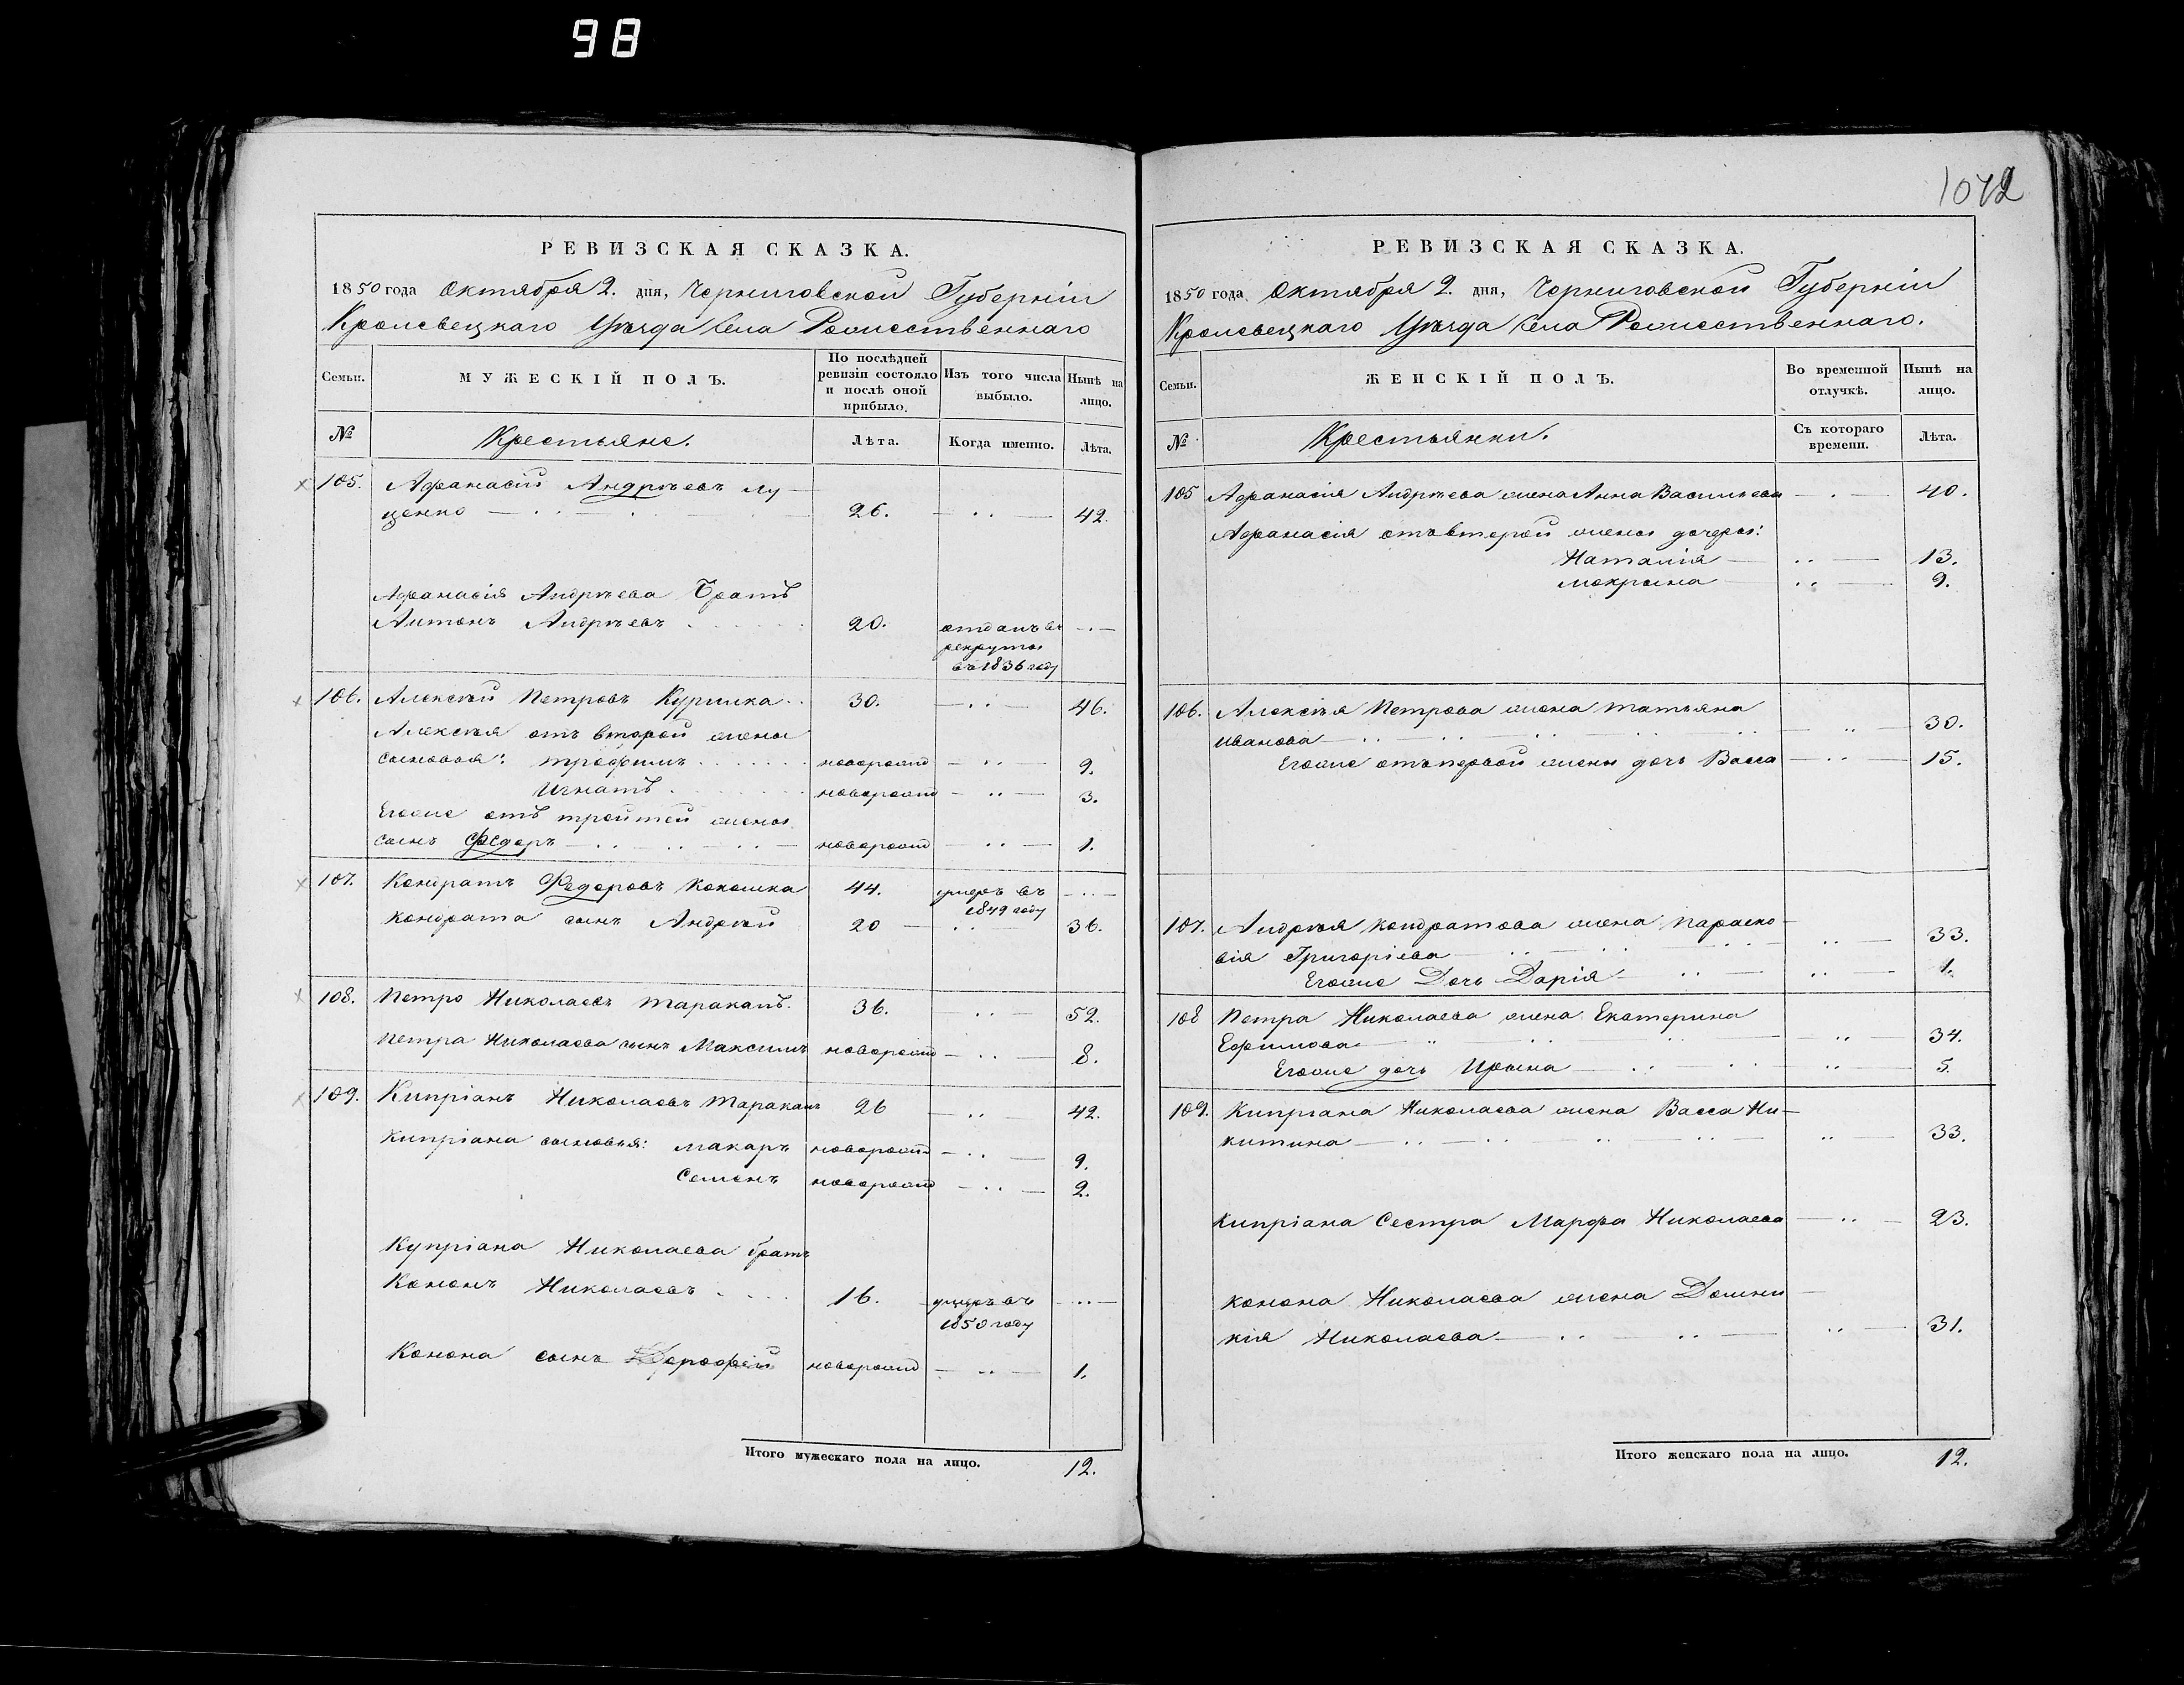 98
РЕВИЗСКАЯ СКАЗКА.
1850 года Октября 2. дня, Черниговской Губерніи
Кролевецкаго Уѣзда Села Рожественнаго
Семьи.
МУЖЕСКІЙ ПОЛЪ.
По послѣдней ревизіи состояло и послѣ оной прибыло.
Изъ того числа выбыло.
Нынѣ на лицо.
№
Крестьяне.
Лѣта.
Когда именно.
Лѣта.
105. Афанасій Андрѣевъ Лу-
ценко 26. 42.
Афанасія Андрѣева Братъ
Антонъ Андрѣевъ 20. отданъ въ
рекруты
въ 1836 году
106. Алексѣй Петровъ Курилка 30. 46.
Алексѣя отъ второй жены
сыновья: Трофимъ новорожд 9.
Игнатъ новорожд 3.
Егоже отъ третей жены
сынъ Федоръ новорожд 1.
107. Кондратъ Федоровъ Кокошка 44. умеръ въ
1849 году
Кондрата сынъ Андрѣй 20 36.
108. Петро Николаевъ Тараканъ. 36. 52.
Петра Николаева сынъ Максимъ новорожд 8.
109. Кипріанъ Николаевъ Тараканъ 26 42.
Кипріана сыновья: Макаръ новорожд 9.
Семенъ новорожд 2.
Купріана Николаева братъ
Кононъ Николаевъ 16. умеръ въ
1850 году
Конона сынъ Дорофей новорожд 1.
Итого мужескаго пола на лицо. 12.
1042
РЕВИЗСКАЯ СКАЗКА.
1850 года Октября 2. дня, Черниговской Губерніи
Кролевецкаго Уѣзда Села Рожественнаго.
Семьи.
ЖЕНСКІЙ ПОЛЪ.
Во временной отлучкѣ.
Нынѣ на лицо.
№
Крестьянки.
Съ котораго времени.
Лѣта.
105 Афанасія Андрѣева жена Анна Васильева 40.
Афанасія отъ второй жены дочеры:
Наталія 13.
Мокрына 9.
106. Алексѣя Петрова жена Татьяна
Иванова 30.
Егоже отъ первой жены дочь Васса 15.
107. Андрѣя Кондратова жена Параско-
вія Григоріева 33.
Егоже Дочь Дарія 1.
108 Петра Николаева жена Екатерина
Ефимова 34.
Егоже дочь Ирына 5.
109. Кипріана Николаева жена Васса Ни-
китина 33.
Кипріана Сестра Марфа Николаева 23.
Конона Николаева жена Домни-
кія Николаева 31.
Итого женскаго пола на лицо. 12.